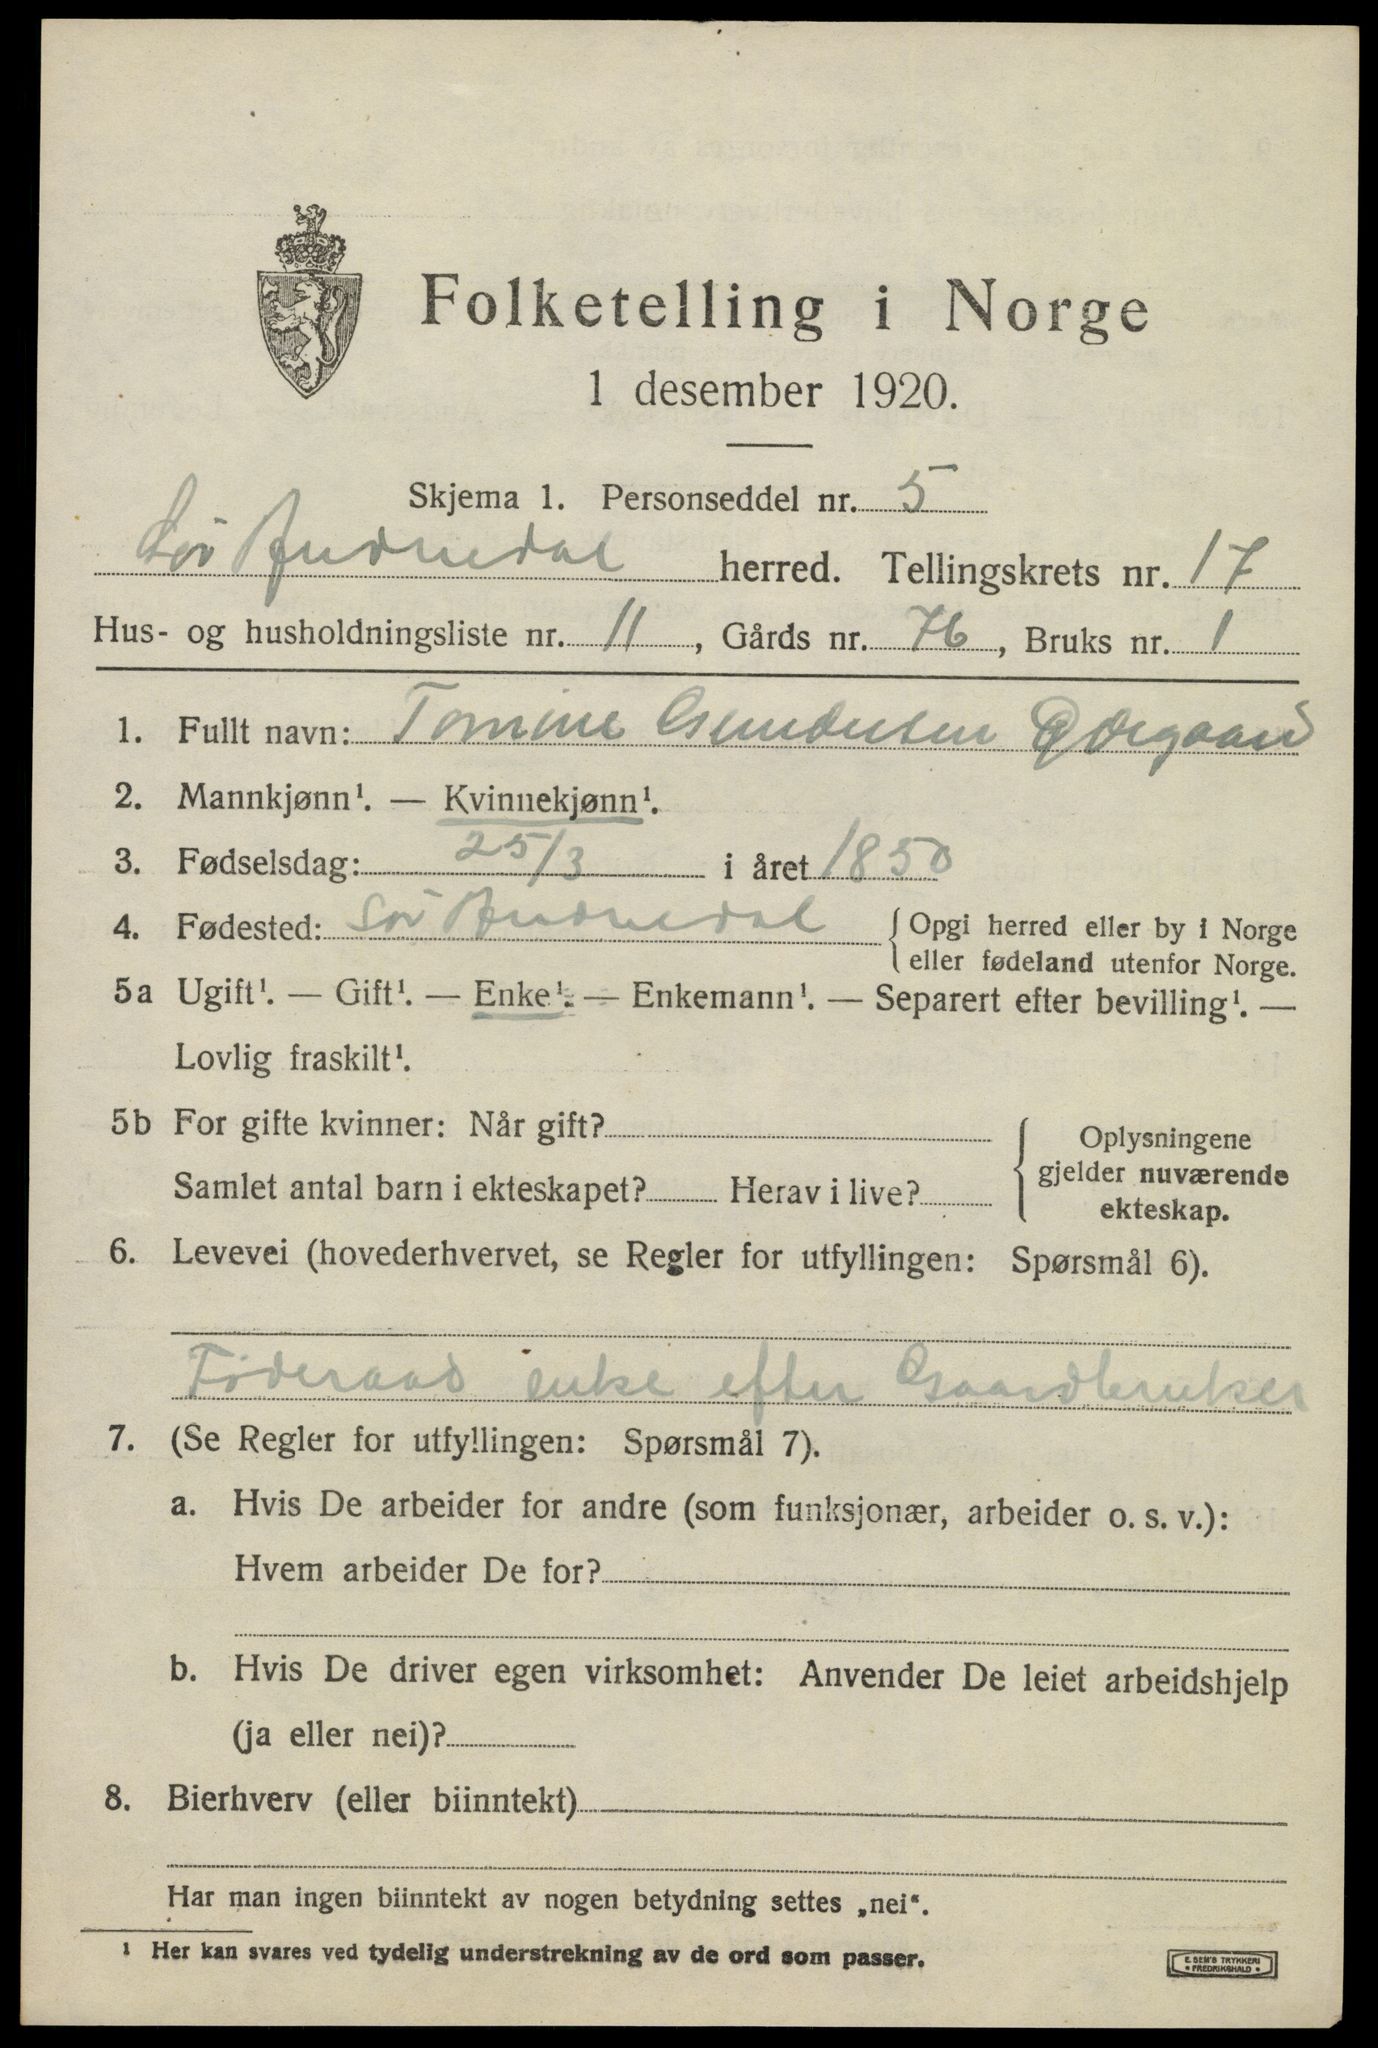 Folketelling i Norge
1 desember 1920.
Skjema 1. Personseddel nr. 5
Sør Audnedal herred. Tellingskrets nr. 17
Hus- og husholdningsliste nr. 11, Gårds nr. 76, Bruks nr. 1
1. Fullt navn: Tomine Gundersen
2. Mannkjønn¹. — Kvinnekjønn¹.
3. Fødselsdag: 25/3 i året 1850
4. Fødested: Sør Audnedal { Opgi herred eller by i Norge
eller fødeland utenfor Norge.
5a Ugift¹. — Gift¹. — Enke¹. — Enkemann¹. — Separert efter bevilling¹. —
Lovlig fraskilt¹.
5b For gifte kvinner: Når gift?
Samlet antal barn i ekteskapet? Herav i live?
Oplysningene
gjelder nuværende
ekteskap.
6. Levevei (hovederhvervet, se Regler for utfyllingen: Spørsmål 6).
Föderaad enke efter Gaardbruker
7. (Se Regler for utfyllingen: Spørsmål 7).
a. Hvis De arbeider for andre (som funksjonær, arbeider o. s. v.):
Hvem arbeider De for?
b. Hvis De driver egen virksomhet: Anvender De leiet arbeidshjelp
(ja eller nei)?
8. Bierhverv (eller biinntekt)
Har man ingen biinntekt av nogen betydning settes „nei“.
¹ Her kan svares ved tydelig understrekning av de ord som passer.
E. SEM'S TRYKKERI
• FREDRIKSHALD •